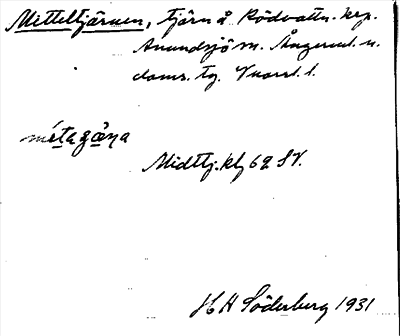 Mitteltjärnen, tjärn å Rödvattn. krp.
Anundsjö sn. Ångerml. n.
doms. tg. Vnorrl. l.
métagäṇa
Midttj. kbl 62 SV.
H H Söderberg 1931